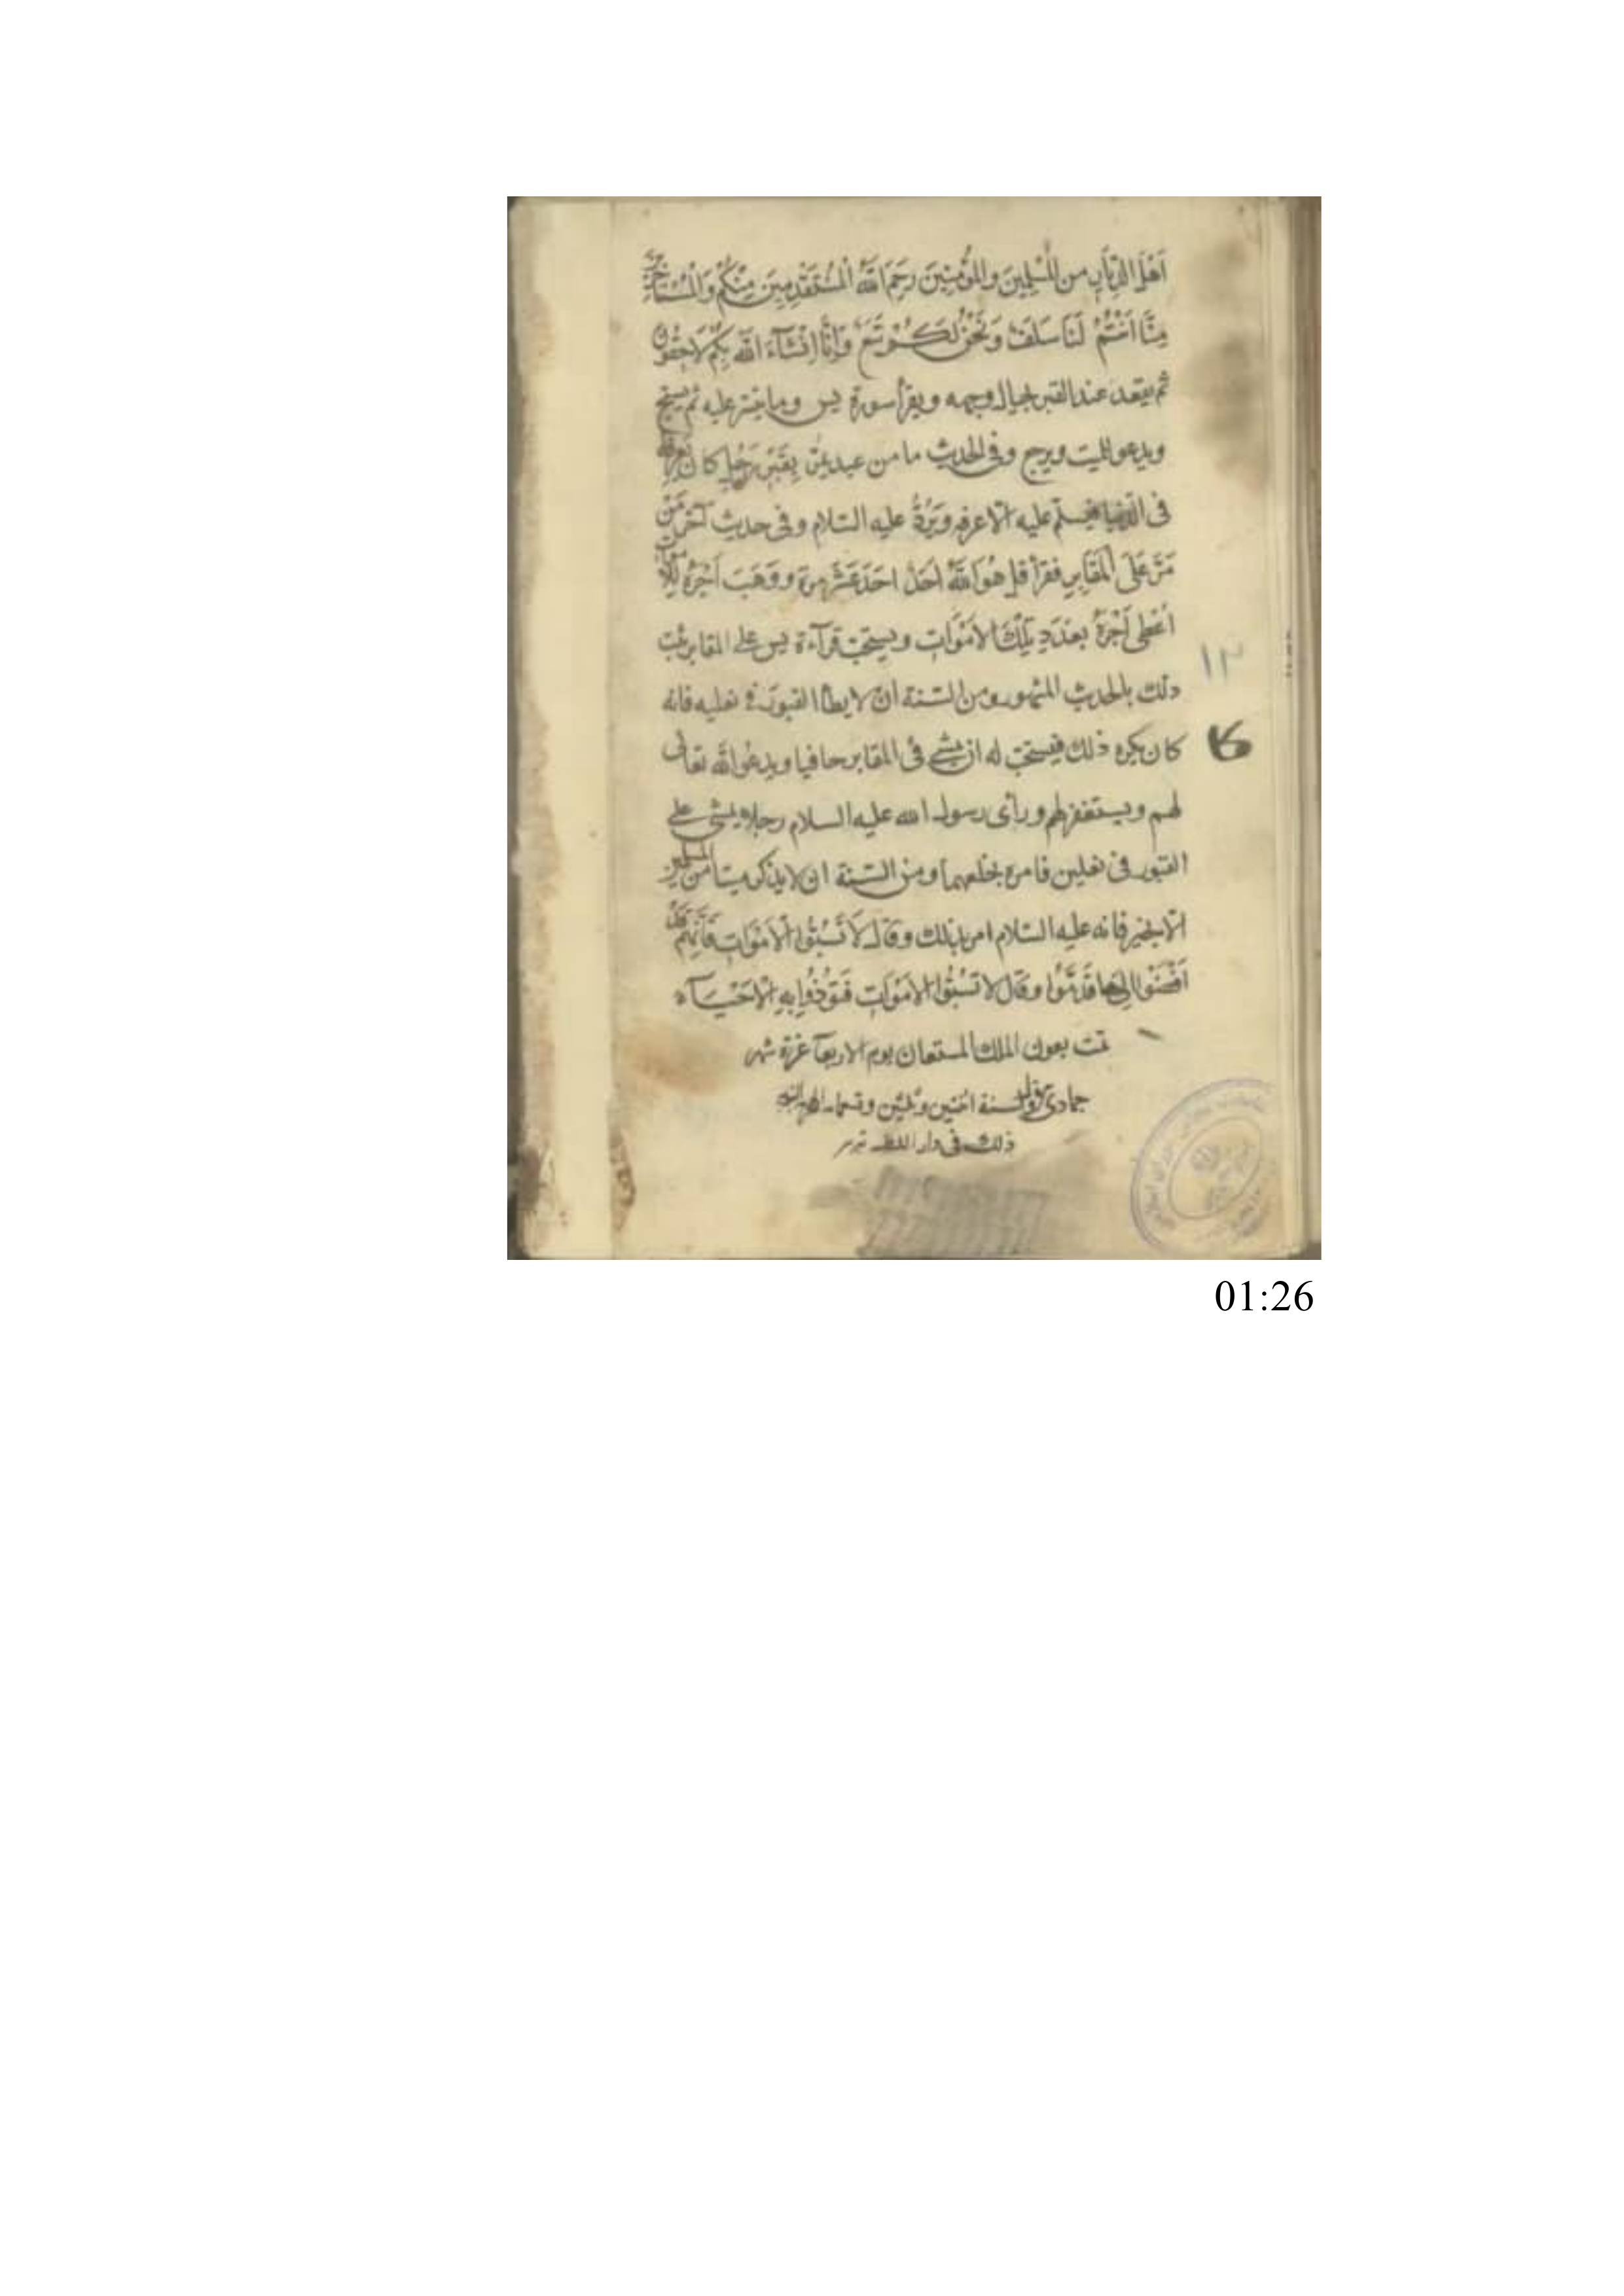 اَهْلَ الدِّيَارِ من الْمُسْلِمِينَ والْمُؤْمِنِينَ رَحِمَ اللّٰهُ الْمُسْتَقْدِمِينَ مِنْكُمْ وَالْمُسْتَأْخِرِينَ
مِنَّا اَنْتُمْ لَنَا سَلَفٌ وَنَحْنُ لَكُمْ تَبَعٌ وَاِنَّا اِنْشَآءَ اللّٰه بِكُمْ لَاحِقُونَ
ثم يقعد عند القبر بحيال وجهه ويقرأ سورة يس وما تيسر عليه ثم يسبح
ويدعو للميت ويرجع وفى الحديث ما من عبد يَمُرُّ بِقَبْرِ رَجُلٍ كان يَعْرِفُهُ
فى الدنيا فيسلم عليه الّا عرفه وَيَرُدُّ عليه السّلام وفى حديث آخر مَنْ
مَرَّ عَلَى الْمَقَابِرِ فقرأ قل هُوَ اللّٰهُ اَحَدٌ احَدَ عَشَرَ مرة ووَهَبَ اَجْرَهُ لِلْاَمْوات
اُعْطِىَ اَجْرَهُ بعَدَدِ تِلْكَ الاَمْوَاتِ ويستحبّ قرآءة يس على المقابر ثبت
ذلك بالحديث المشهور ومن السّنة ان لا يطأ القبور فى نعليه فانه
كان يكره ذلك فيستحبّ له ان يمشى فى المقابر حافيا ويدعو اللّٰه تعالى
لهم ويستغفر لهم ورأى رسول الله عليه السلام رجلا يمشى على
القبور فى نعلين فامره بخلعهما ومن السّنة ان لا يذكر ميتا من المسلمين
الّا بخير فانه عليه السّلام امر بذلك وقال لَا تَسُبُّوا الْاَمْوَاتِ فَاِنَّهُمْ قَدْ
اَفْضَوْا اِلَى مَا قَدَّمُوا وقال لا تَسُبُّوا الاَمْوَاتِ فَتُؤْذُوا بِهِ الْاَحْيَآءَ
تمت بعون الملك المستعان يوم الاربعآ غرة شهر
جمادى سنة اثنين وثلثين وتسعمائه
ذلك فى دار
١٢
01:26